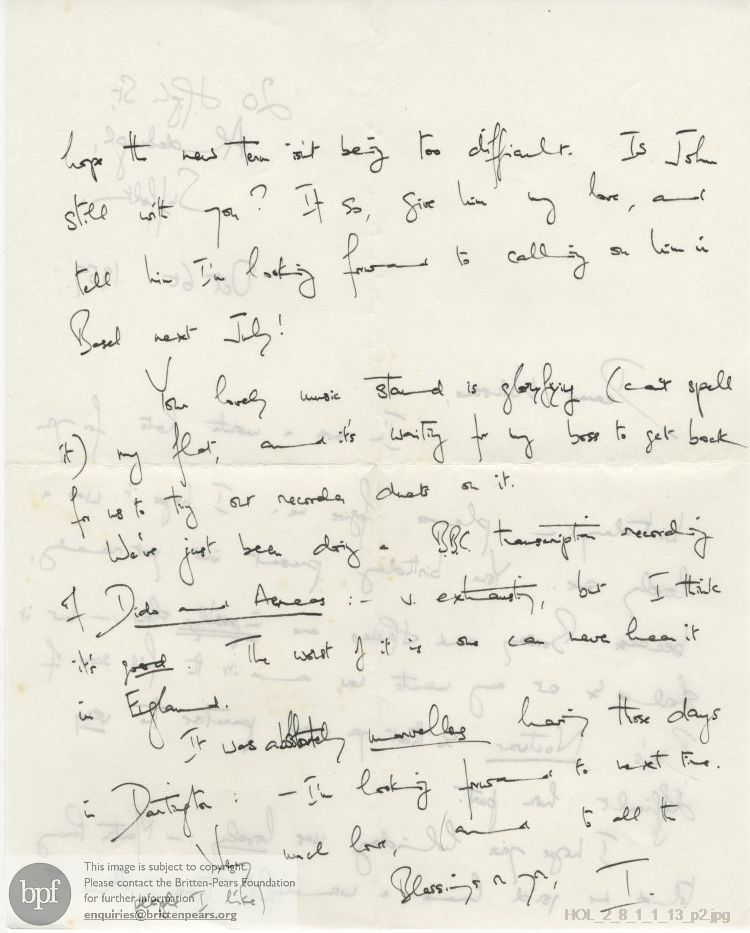 hope the new Term isn't being too difficult. Is John
still with you? If so, give him my love, and
tell him I'm looking forward to calling on him in
Basel next July!
Your lovely music stand is gloryfying (can't spell
it) my flat, and it's waiting for my boss to get back
for us to try our recorder duets on it.
We've just been doing a BBC transcription recording
of Dido and Aeneas :- v. exhausting, but I think
it's good. The worst of it is one can never hear it
in England.
It was absolutely marvellous having those days
in Dartington: - I'm looking forward to next time.
Very much love, (and to all the
people I like)
Blessings on you, I.
bpf
This image is subject to copyright.
Please contact the Britten-Pears Foundation
for further information
enquiries@brittenpears.org
HOL_2_8_1_1_13_p2.jpg